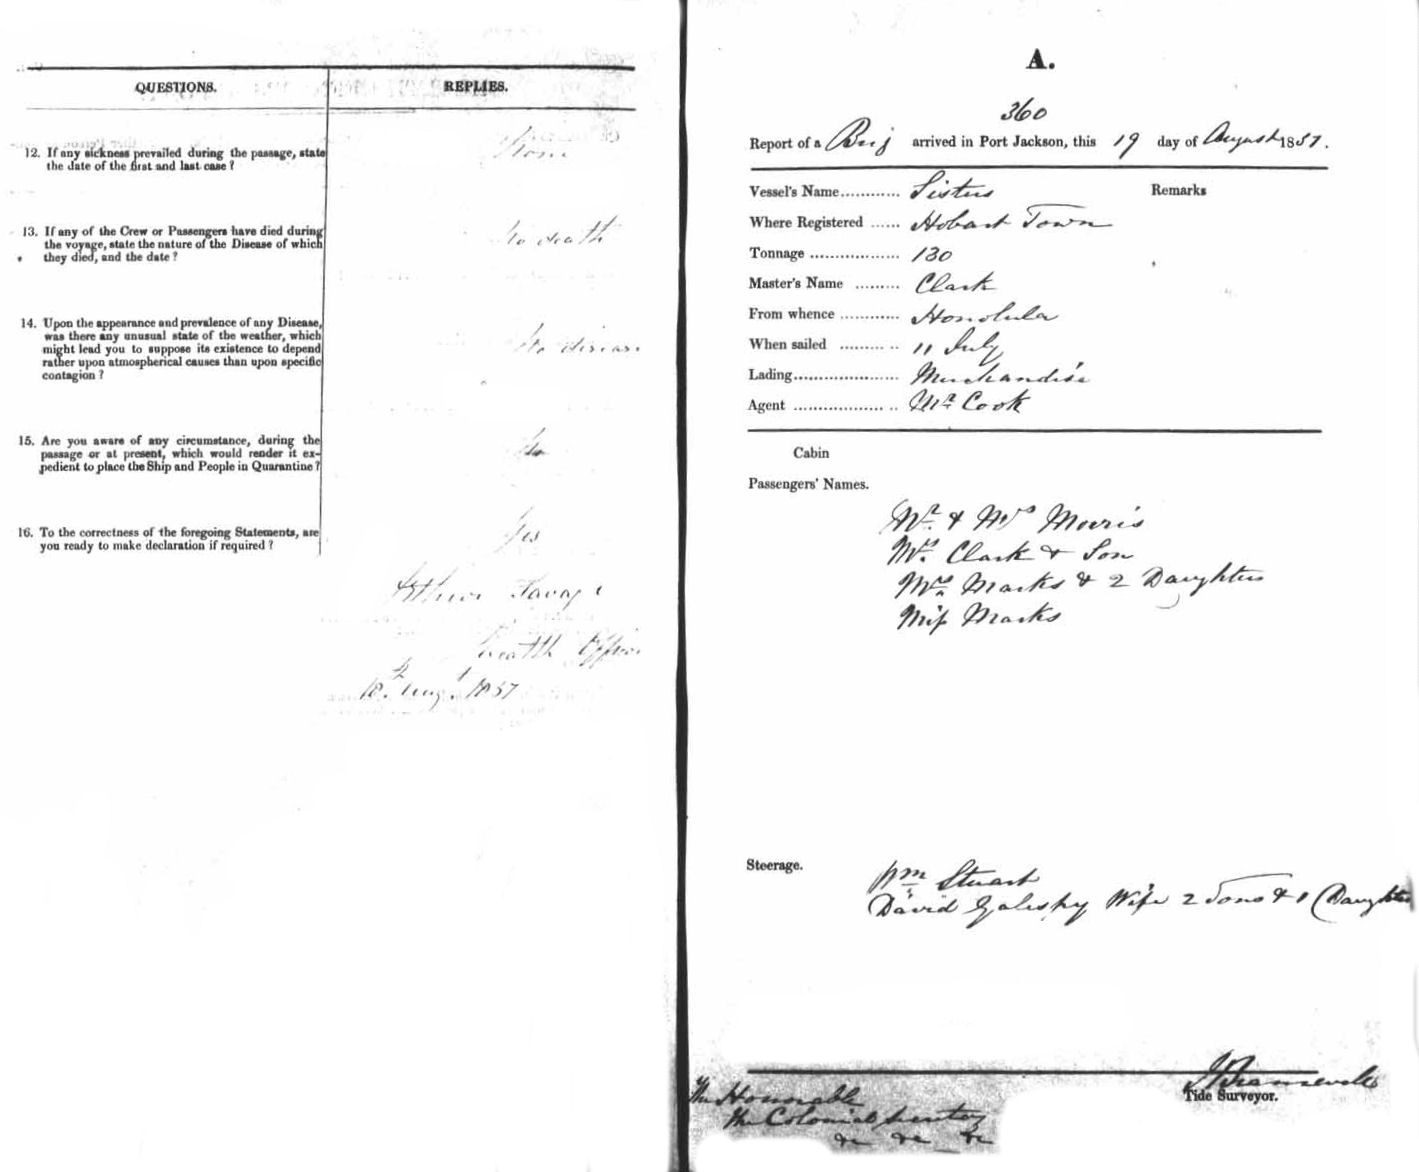 QUESTIONS. REPLIES.
12. If any sickness prevailed during the passage, state
the date of the first and last case ?
None
13. If any of the Crew or Passengers have died during
the voyage, state the nature of the Disease of which
they died, and the date ?
No death
14. Upon the appearance and prevalence of any Disease,
was there any unusual state of the weather, which
might lead you to suppose its existence to depend
rather upon atmospherical causes than upon specific
contagion ?
No disease
15. Are you aware of any circumstance, during the
passage or at present, which would render it ex-
pedient to place the Ship and People in Quarantine ?
No
16. To the correctness of the foregoing Statements, are
you ready to make declaration if required ?
Yes
Arthur Savage
Health Officer
Augt. 1857
A.
360
Report of a Brig arrived in Port Jackson, this 19 day of August 1857.
Vessel's Name............ Sisters Remarks
Where Registered ...... Hobart Town
Tonnage .................. 130
Master's Name ......... Clark
From whence ............ Honolula
When sailed ......... .. 11 July
Lading..................... Merchandise
Agent .................. .. Mr Cook
Cabin
Passengers' Names.
Mr. & Mrs Morris
Mrs. Clark & Son
Mrs. Marks & 2 Daughters
Miss Marks
Steerage.
Wm Stuart
David Galespy Wife 2 Sons & 1 Daughter
Tide Surveyor.
The Honorable
The Colonial Secretary
&c &c &c